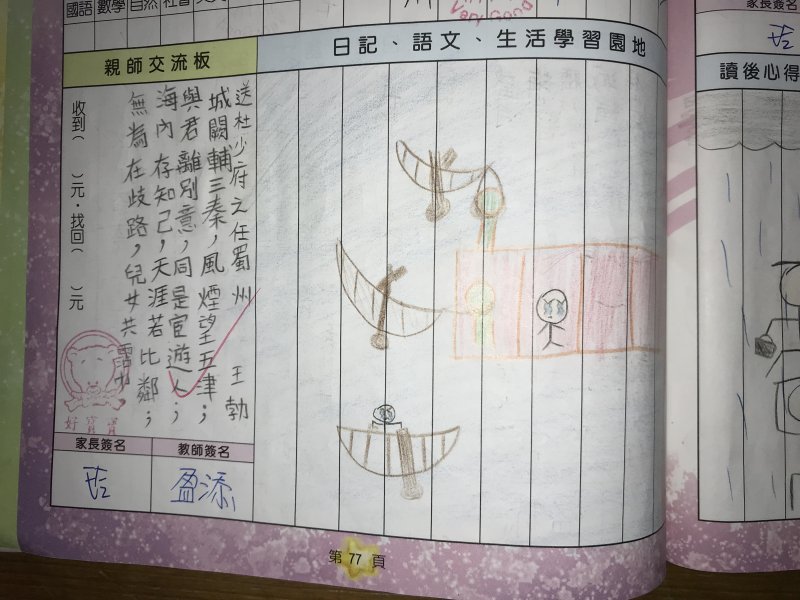 國語 數學 自然 社會
Very Good
日記、語文、生活學習園地
親師交流板
送杜少府之任蜀州 王勃
城闕輔三秦,風煙望五津;
與君離別意,同是宦遊人;
海內存知己,天涯若比鄰;
無為在歧路,兒女共霑巾。
收到( )元.找回( )元
好寶寶
家長簽名
教師簽名
盈添
第 77 頁
家長簽名
讀後心得